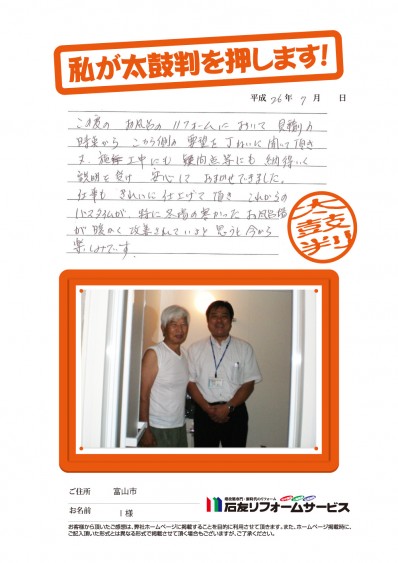 私が太鼓判を押します!
平成26年7月 日
この度の お風呂のリフォームにおいて 見積りの
時点から こちら側の要望を ていねいに聞いて頂き
又、施工中にも 疑問点等にも 納得いく
説明を受け 安心して おまかせできました。
仕事も きれいに仕上げて頂き これからの
バスタイムが、特に冬場の寒かった お風呂場
が暖かく 改善されていると思うと今から
楽しみです。
太鼓判
ご住所 富山市
お名前 I様
石友リフォームサービス
お客様から頂いたご感想は、弊社ホームページに掲載することを目的に利用させて頂きます。また、ホームページ掲載時に、
ご記入頂いた形式とは異なる形式で掲載させて頂く場合もございますが、ご了承ください。